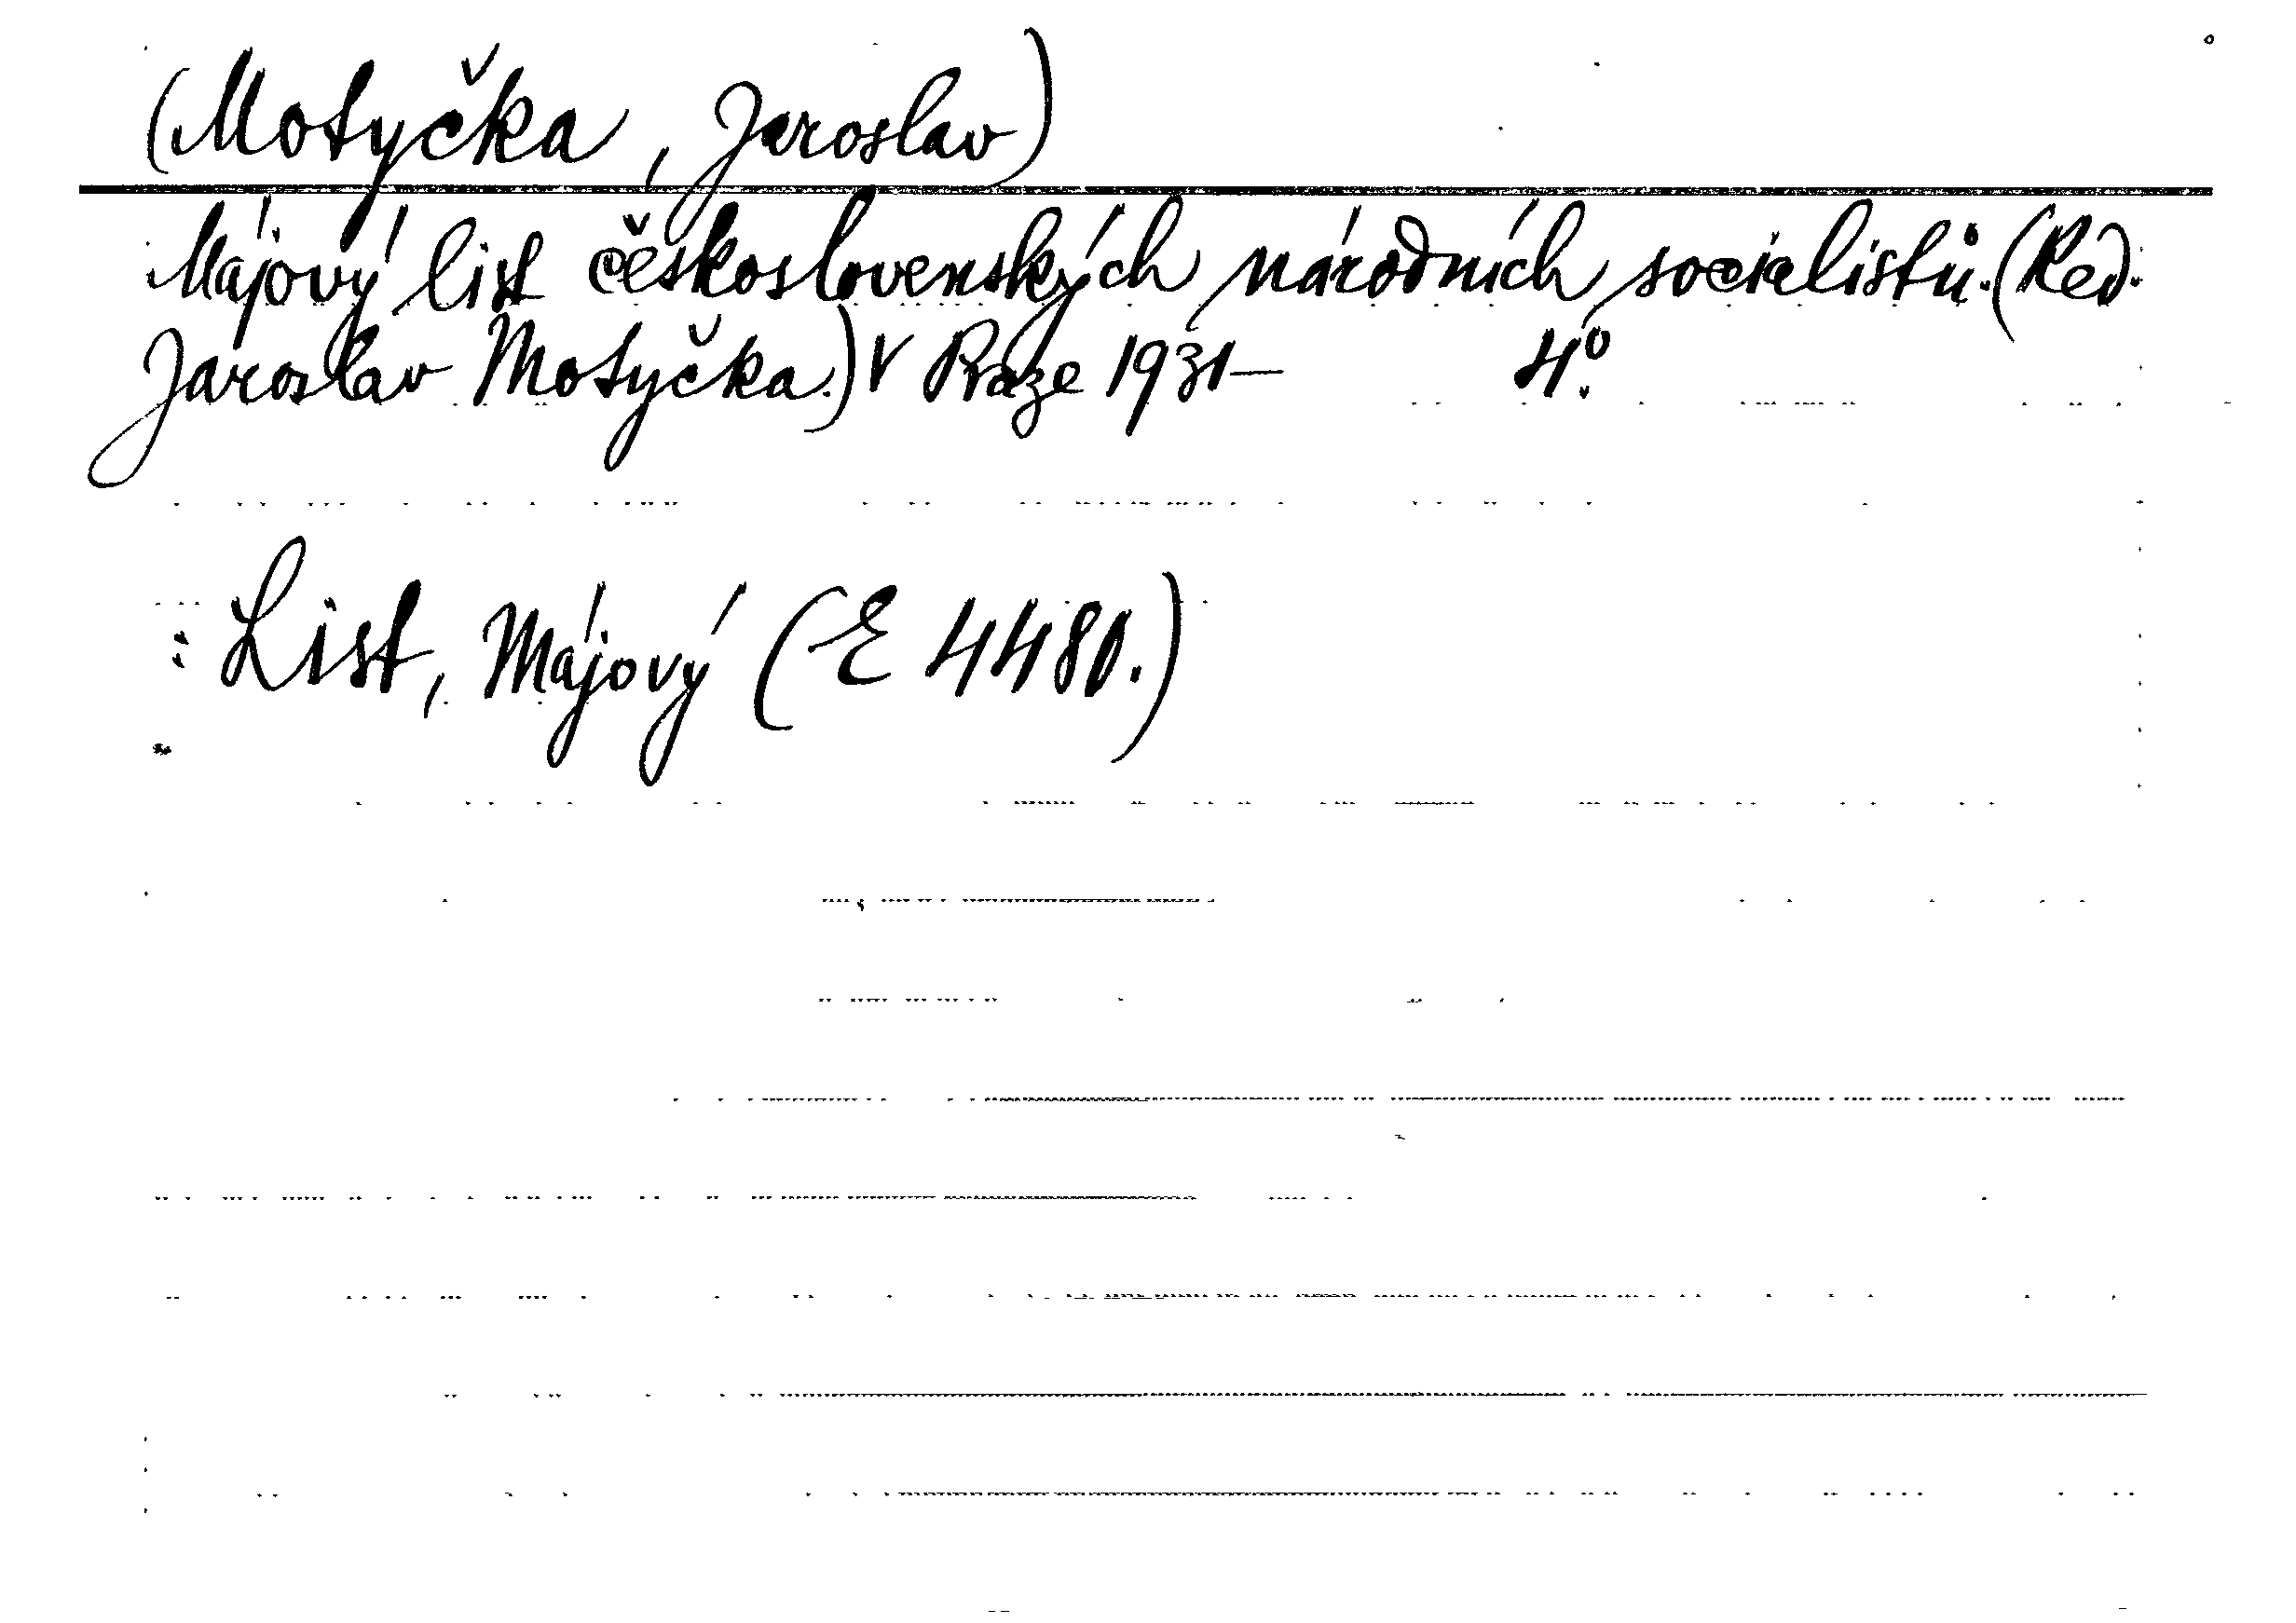 (Motyčka, Jaroslav)
Májový list československých národních socialistů. (Red.
Jaroslav Motyčka.) V Praze 1931— 4º.
: List, Májový (E 4480.)